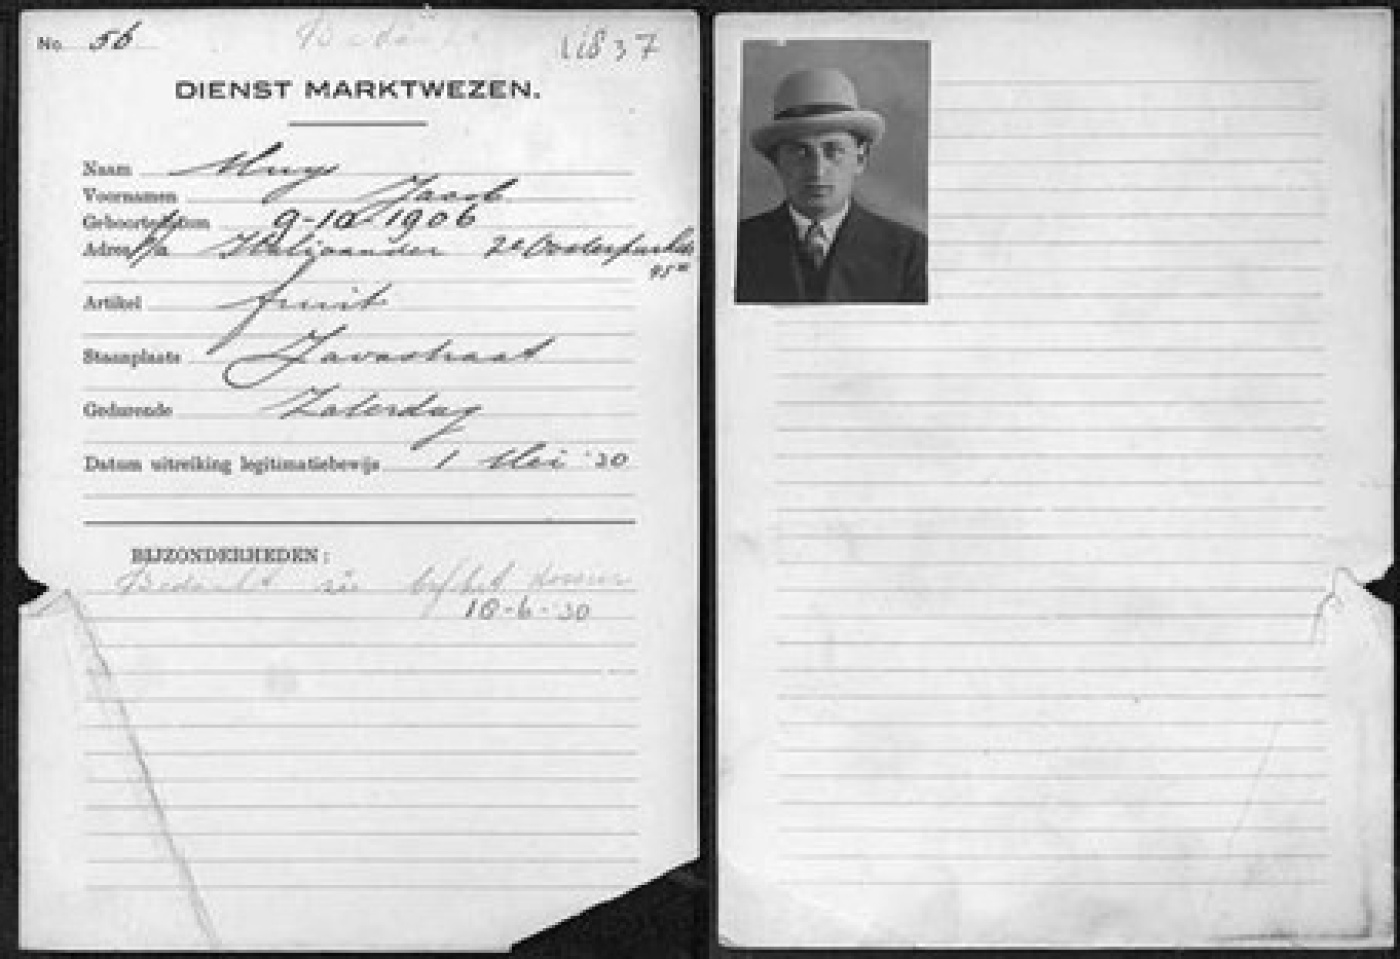 No 56 Bedankt 11837
DIENST MARKTWEZEN.
Naam Muy
Voornamen Jacob
Geboortedatum 9-10-1906
Adres p/a 2e Oosterparkstr
95 III
Artikel fruit
Staanplaats Javastraat
Gedurende Zaterdag
Datum uitreiking legitimatiebewijs 1 Mei '30
BIJZONDERHEDEN:
Bedankt zie
10-6-30